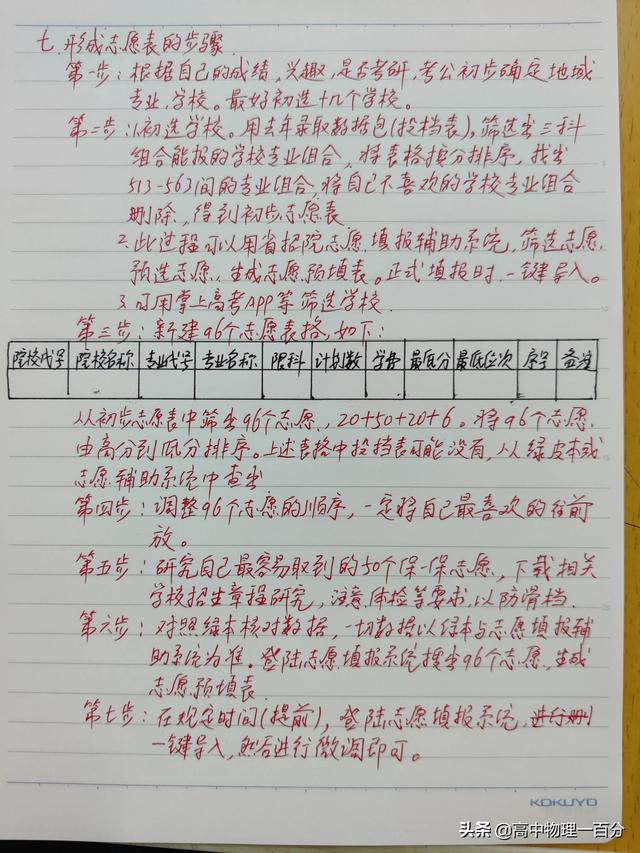 七.形成志愿表的步骤
第一步：根据自己的成绩，兴趣，是否考研，考公初步确定地域
专业，学校。最好初选十几个学校。
第二步：1.初选学校。用去年录取数据包(投档表)，筛选出三科
组合能报的学校专业组合，将表格按分排序，找出
513-563间的专业组合，将自己不喜欢的学校专业组合
删除，得到初步志愿表
2.此过程可以用省招院志愿填报辅助系统，筛选志愿，
预选志愿，生成志愿预填表。正式填报时，一键导入。
3.可用掌上高考APP等筛选学校
第三步：新建96个志愿表格，如下：
院校代号 院校名称 专业代号 专业名称 限科 计划数 学费 最低分 最低位次 序号 备注
从初步志愿表中筛出96个志愿，20+50+20+6。将96个志愿
由高分到低分排序。上述表格中投档表可能没有，从绿皮本或
志愿辅助系统中查出
第四步：调整96个志愿的顺序，一定将自己最喜欢的往前
放。
第五步：研究自己最容易取到的50个保一保志愿，下载相关
学校招生章程研究，注意体检等要求，以防滑档.
第六步：对照绿本核对数据，一切数据以绿本与志愿填报辅
助系统为准。登陆志愿填报系统搜出96个志愿，生成
志愿预填表
第七步：在规定时间(提前)，登陆志愿填报系统，
一键导入，然后进行微调即可。
KOKUYO
头条@高中物理一百分